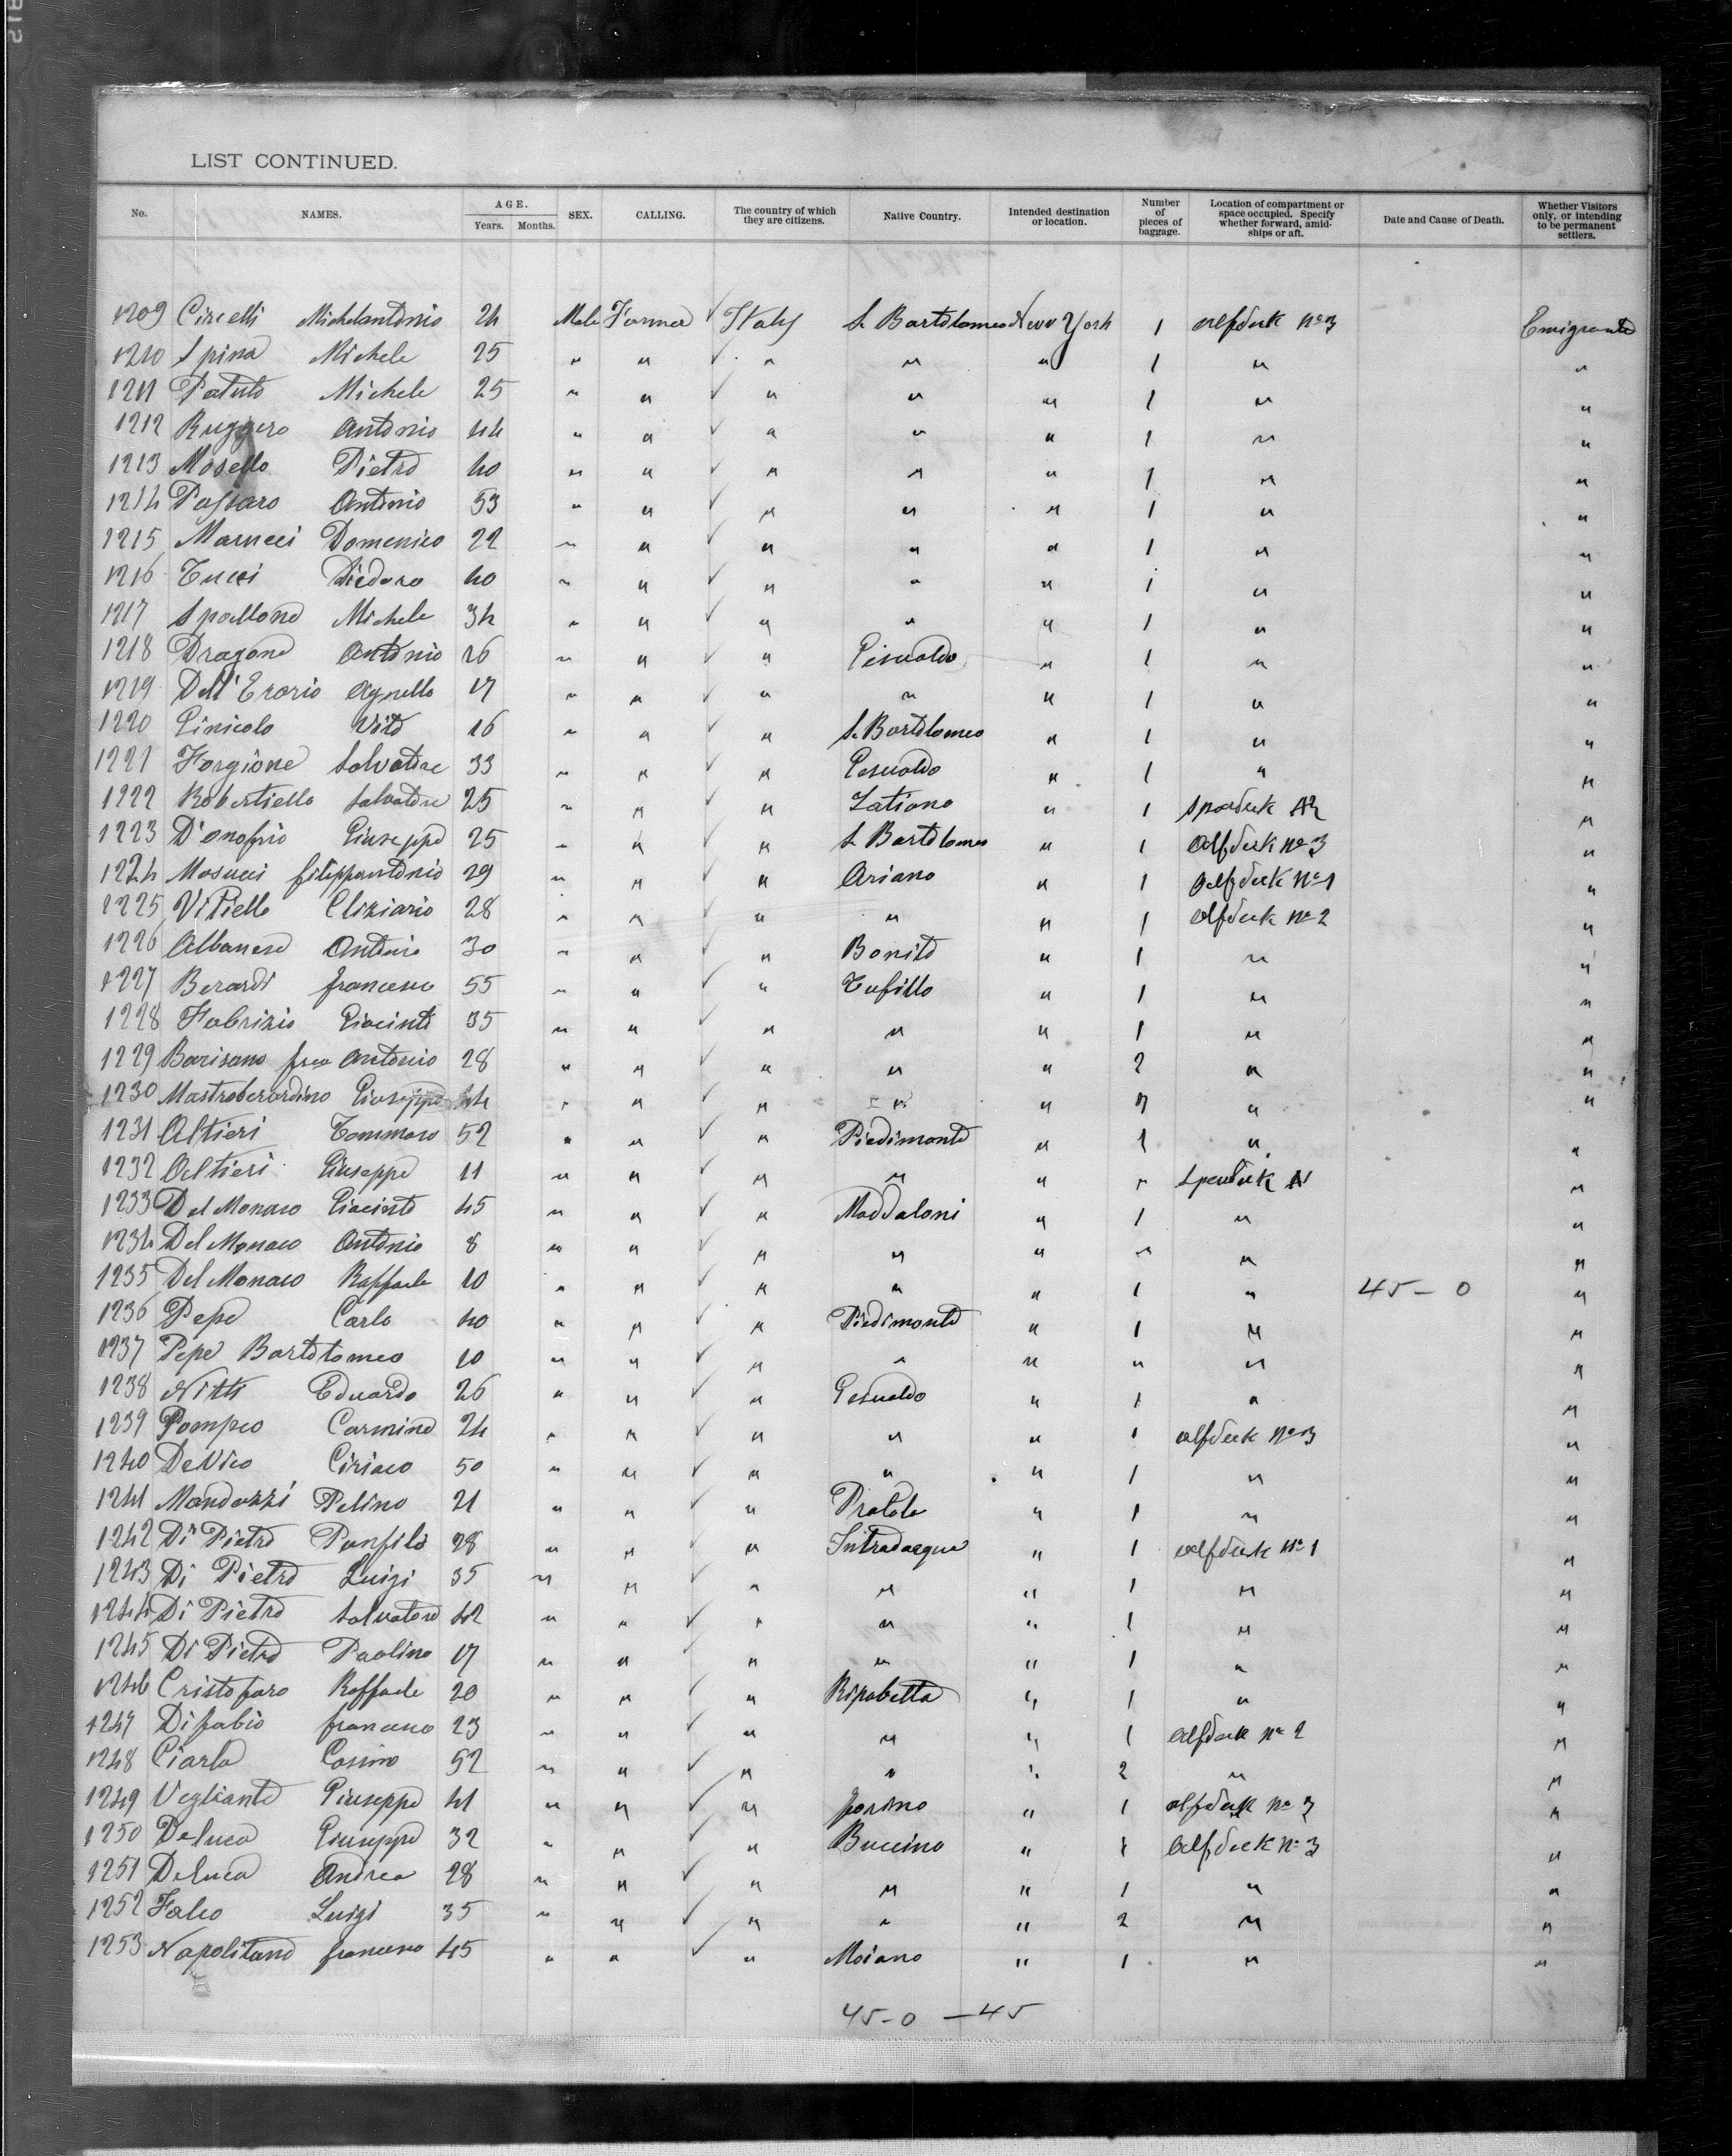 LIST CONTINUED.
No. NAMES. AGE. Years. Months. SEX. CALLING. The country of which they are citizens. Native Country. Intended destination or location. Number of pieces of baggage. Location of compartment or space occupied. Specify whether forward, amidships or aft. Date and Cause of Death. Whether Visitors only, or intending to be permanent settlers.
1209 Circelli Michelantonio 24 Male Farmer ✓ Italy S. Bartolomeo New York 1 alfdeck No 3 Emigrante
1210 Spina Michele 25 " " ✓ " " " 1 " "
1211 Patuto Michele 25 " " ✓ " " " 1 " "
1212 Ruggero Antonio 44 " " ✓ " " " 1 " "
1213 Mosello Pietro 40 " " ✓ " " " 1 " "
1214 Antonio 53 " " ✓ " " " 1 " "
1215 Marucci Domenico 22 " " ✓ " " " 1 " "
1216 Tucci Diodoro 40 " " ✓ " " " 1 " "
1217 Spallone Michele 34 " " ✓ " " " 1 " "
1218 Dragone Antonio 26 " " ✓ " Gesualdo " 1 " "
1219 Dell'Erario Agnello 17 " " ✓ " " " 1 " "
1220 Vito 16 " " ✓ " S. Bartolomeo " 1 " "
1221 Forgione Salvatore 33 " " ✓ " Gesualdo " 1 " "
1222 Robertiello Salvatore 25 " " ✓ " " 1 "
1223 D'onofrio Giuseppe 25 " " ✓ " S. Bartolomeo " 1 alfdeck No 3 "
1224 Masucci filippantonio 29 " " ✓ " Ariano " 1 alfdeck No 1 "
1225 Vitiello Eliziario 28 " " ✓ " " " 1 alfdeck No 2 "
1226 Albanese Antonio 30 " " ✓ " Bonito " 1 " "
1227 Berardi francesco 55 " " ✓ " Tufillo " 1 " "
1228 Fabrizio Giacinto 35 " " ✓ " " " 1 " "
1229 Barisano Antonio 28 " " ✓ " " " 2 " "
1230 Mastroberardino Giuseppe 44 " " ✓ " " " " "
1231 Altieri Tommaso 52 " " ✓ " Piedimonte " 1 " "
1232 Altieri Giuseppe 11 " " ✓ " " " " "
1233 Del Monaco Giacinto 45 " " ✓ " Maddaloni " 1 " "
1234 Del Monaco Antonio 8 " " ✓ " " " " " "
1235 Del Monaco Raffaele 10 " " ✓ " " " 1 " 45 - 0 "
1236 Pepe Carlo 40 " " ✓ " Piedimonte " 1 " "
1237 Pepe Bartolomeo 10 " " ✓ " " " " " "
1238 Nitti Eduardo 26 " " ✓ " Gesualdo " 1 " "
1239 Pompeo Carmine 24 " " ✓ " " " 1 alfdeck No 3 "
1240 DeVito Ciriaco 50 " " ✓ " " " 1 " "
1241 Pelino 21 " " ✓ " Pratola " 1 " "
1242 Di Pietro Panfilo 28 " " ✓ " Introdacqua " 1 alfdeck No 1 "
1243 Di Pietro Luigi 35 " " ✓ " " " 1 " "
1244 Di Pietro Salvatore 42 " " ✓ " " " 1 " "
1245 Di Pietro Paolino 17 " " ✓ " " " 1 " "
1246 Cristofaro Raffaele 20 " " ✓ " Ripabetta " 1 " "
1247 Difabio francesco 23 " " ✓ " " " 1 alfdeck No 2 "
1248 Ciarla Cosimo 52 " " ✓ " " " 2 " "
1249 Vegliante Giuseppe 41 " " ✓ " " 1 alfdeck No 3 "
1250 Deluca Giuseppe 32 " " ✓ " Buccino " 1 alfdeck No 3 "
1251 Deluca Andrea 28 " " ✓ " " " 1 " "
1252 Falco Luigi 35 " " ✓ " " " 2 " "
1253 Napolitano francesco 45 " " ✓ " Moiano " 1 " "
45 - 0 - 45